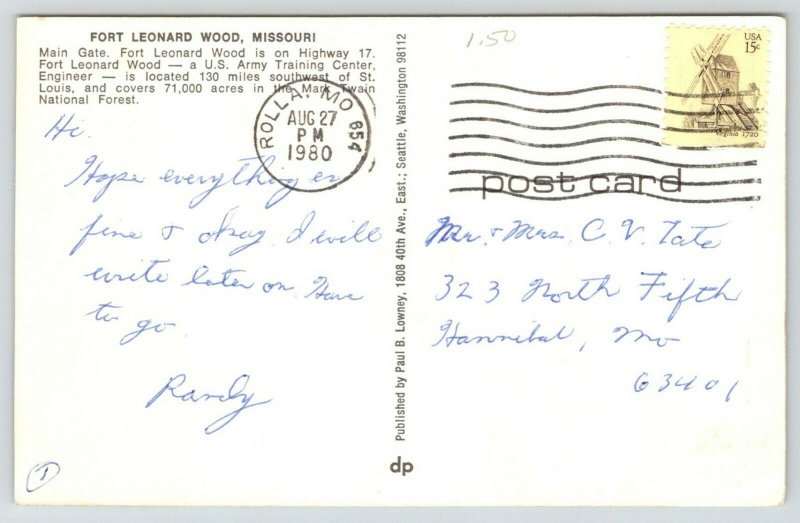 FORT LEONARD WOOD, MISSOURI
Main Gate. Fort Leonard Wood is on Highway 17.
Fort Leonard Wood — a U.S. Army Training Center,
Engineer — is located 130 miles southwest of St.
Louis, and covers 71,000 acres in the Mark Twain
National Forest.
Hi.
Hope everything er
fine & okay. I will
write later on. Have
to go
Randy
1
ROLLA, MO 654
AUG 27
PM
1980
Published by Paul B. Lowney, 1808 40th Ave., East.; Seattle, Washington 98112
dp
1.50
USA
15c
Virginia 1720
post card
Mr. & Mrs. C. V. Tate
323 North Fifth
Hannibal, Mo
63401